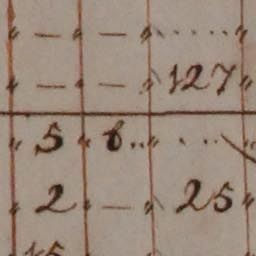 " — " — " ..... "
" — " — " 127 "
" 5 " 6 .. " ...
" 2 " — " 25 "
15